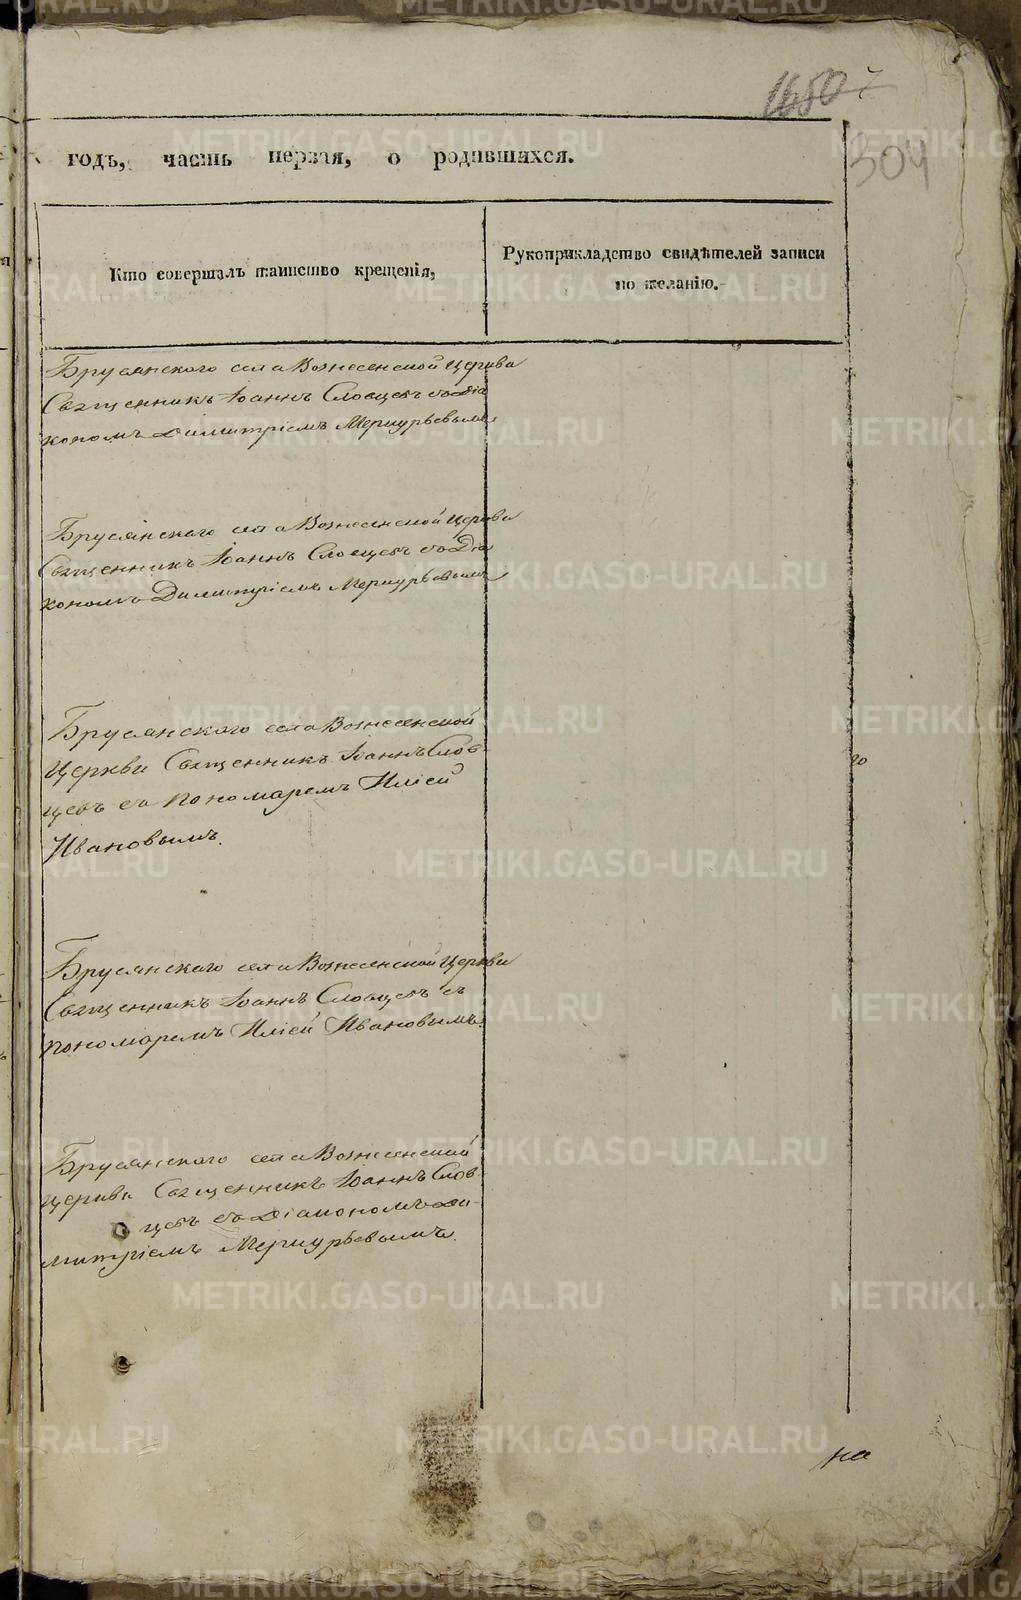 1650
304
годъ, часть первая, о родившихся.
Кто совершалъ таинство крещенія,
Рукоприкладство свидѣтелей записи
по желанію.
Бруснянского села Вознесенской Церкви
Священникъ Іоаннъ Словцевъ съ Діа
кономъ Димитріемъ Меркурьевымъ
Бруснянского села Вознесенской Церкви
Священникъ Іоаннъ Словцевъ съ Діа
кономъ Димитріемъ Меркурьевымъ
Бруснянского села Вознесенской
Церкви Священникъ Іоаннъ Слов-
цевъ съ пономаремъ Иліей
Ивановымъ.
Бруснянского села Вознесенской Церкви
Священникъ Іоаннъ Словцевъ съ
пономаремъ Иліей Ивановымъ.
Бруснянского села Вознесенской
Церкви Священникъ Іоаннъ Слов-
цевъ съ Діакономъ Ди-
митріемъ Меркурьевымъ.
по
на
METRIKI.GASO-URAL.RU